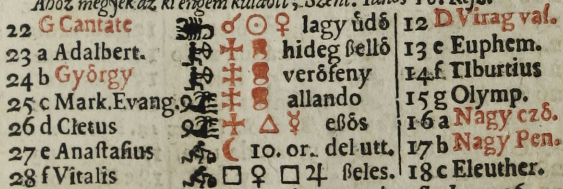 Ahoz megyek az ki engem küldött, Szent. Ianos
22 G Cantate ☌ ☉ ♀ lagy üdő 12 D Virag vas.
23 a Adalbert. hideg ßellő 13 e Euphem.
24 b György verőfeny 14 f Tiburtius
25 c Mark. Evang. allando 15 g Olymp.
26 d Cletus △ ☿ eßős 16 a Nagy czö.
27 e Anaſtaſius ☾ 10. or. del utt. 17 b Nagy Pen.
28 f Vitalis □ ♀ □ ♃ ßeles. 18 c Eleuther.